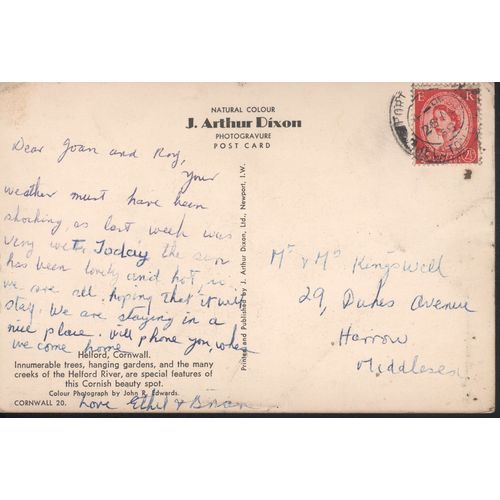 NATURAL COLOUR
J. Arthur Dixon
PHOTOGRAVURE
POST CARD
E R
Dear Joan and Roy,
Your
weather must have been
shocking, as last week was
very wet. Today the sun
has been lovely and hot, so
we are all hoping that it will
stay. We are staying in a
nice place. Will phone you when
we come home
Helford, Cornwall.
Innumerable trees, hanging gardens, and the many
creeks of the Helford River, are special features of
this Cornish beauty spot.
Colour Photograph by John R. Edwards.
CORNWALL 20.
Love Ethel & Brian
Printed and Published by J. Arthur Dixon, Ltd., Newport, I.W.
Mr & Mrs Kingswell
29, Dukes Avenue
Harrow
Middlesex